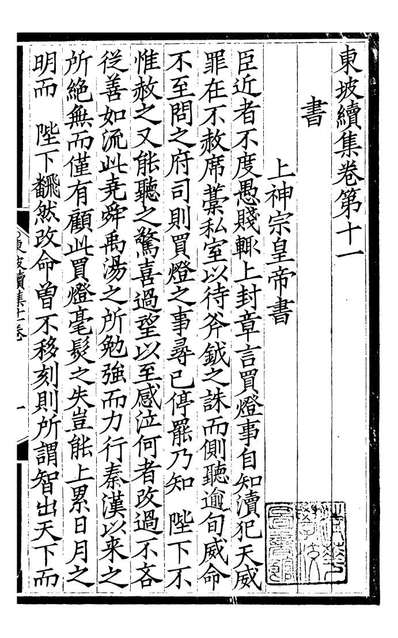 東坡續集卷第十一
書
上神宗皇帝書
臣近者不度愚賤輙上封章言買燈事自知瀆犯天威
罪在不赦席藁私室以待斧鉞之誅而側聽逾旬威命
不至問之府司則買燈之事尋已停罷乃知 陛下不
惟赦之又能聽之驚喜過望以至感泣何者改過不吝
從善如流此堯舜禹湯之所勉強而力行秦漢以來之
所絶無而僅有顧此買燈毫髮之失豈能上累日月之
明而 陛下飜然改命曽不移刻則所謂智出天下而